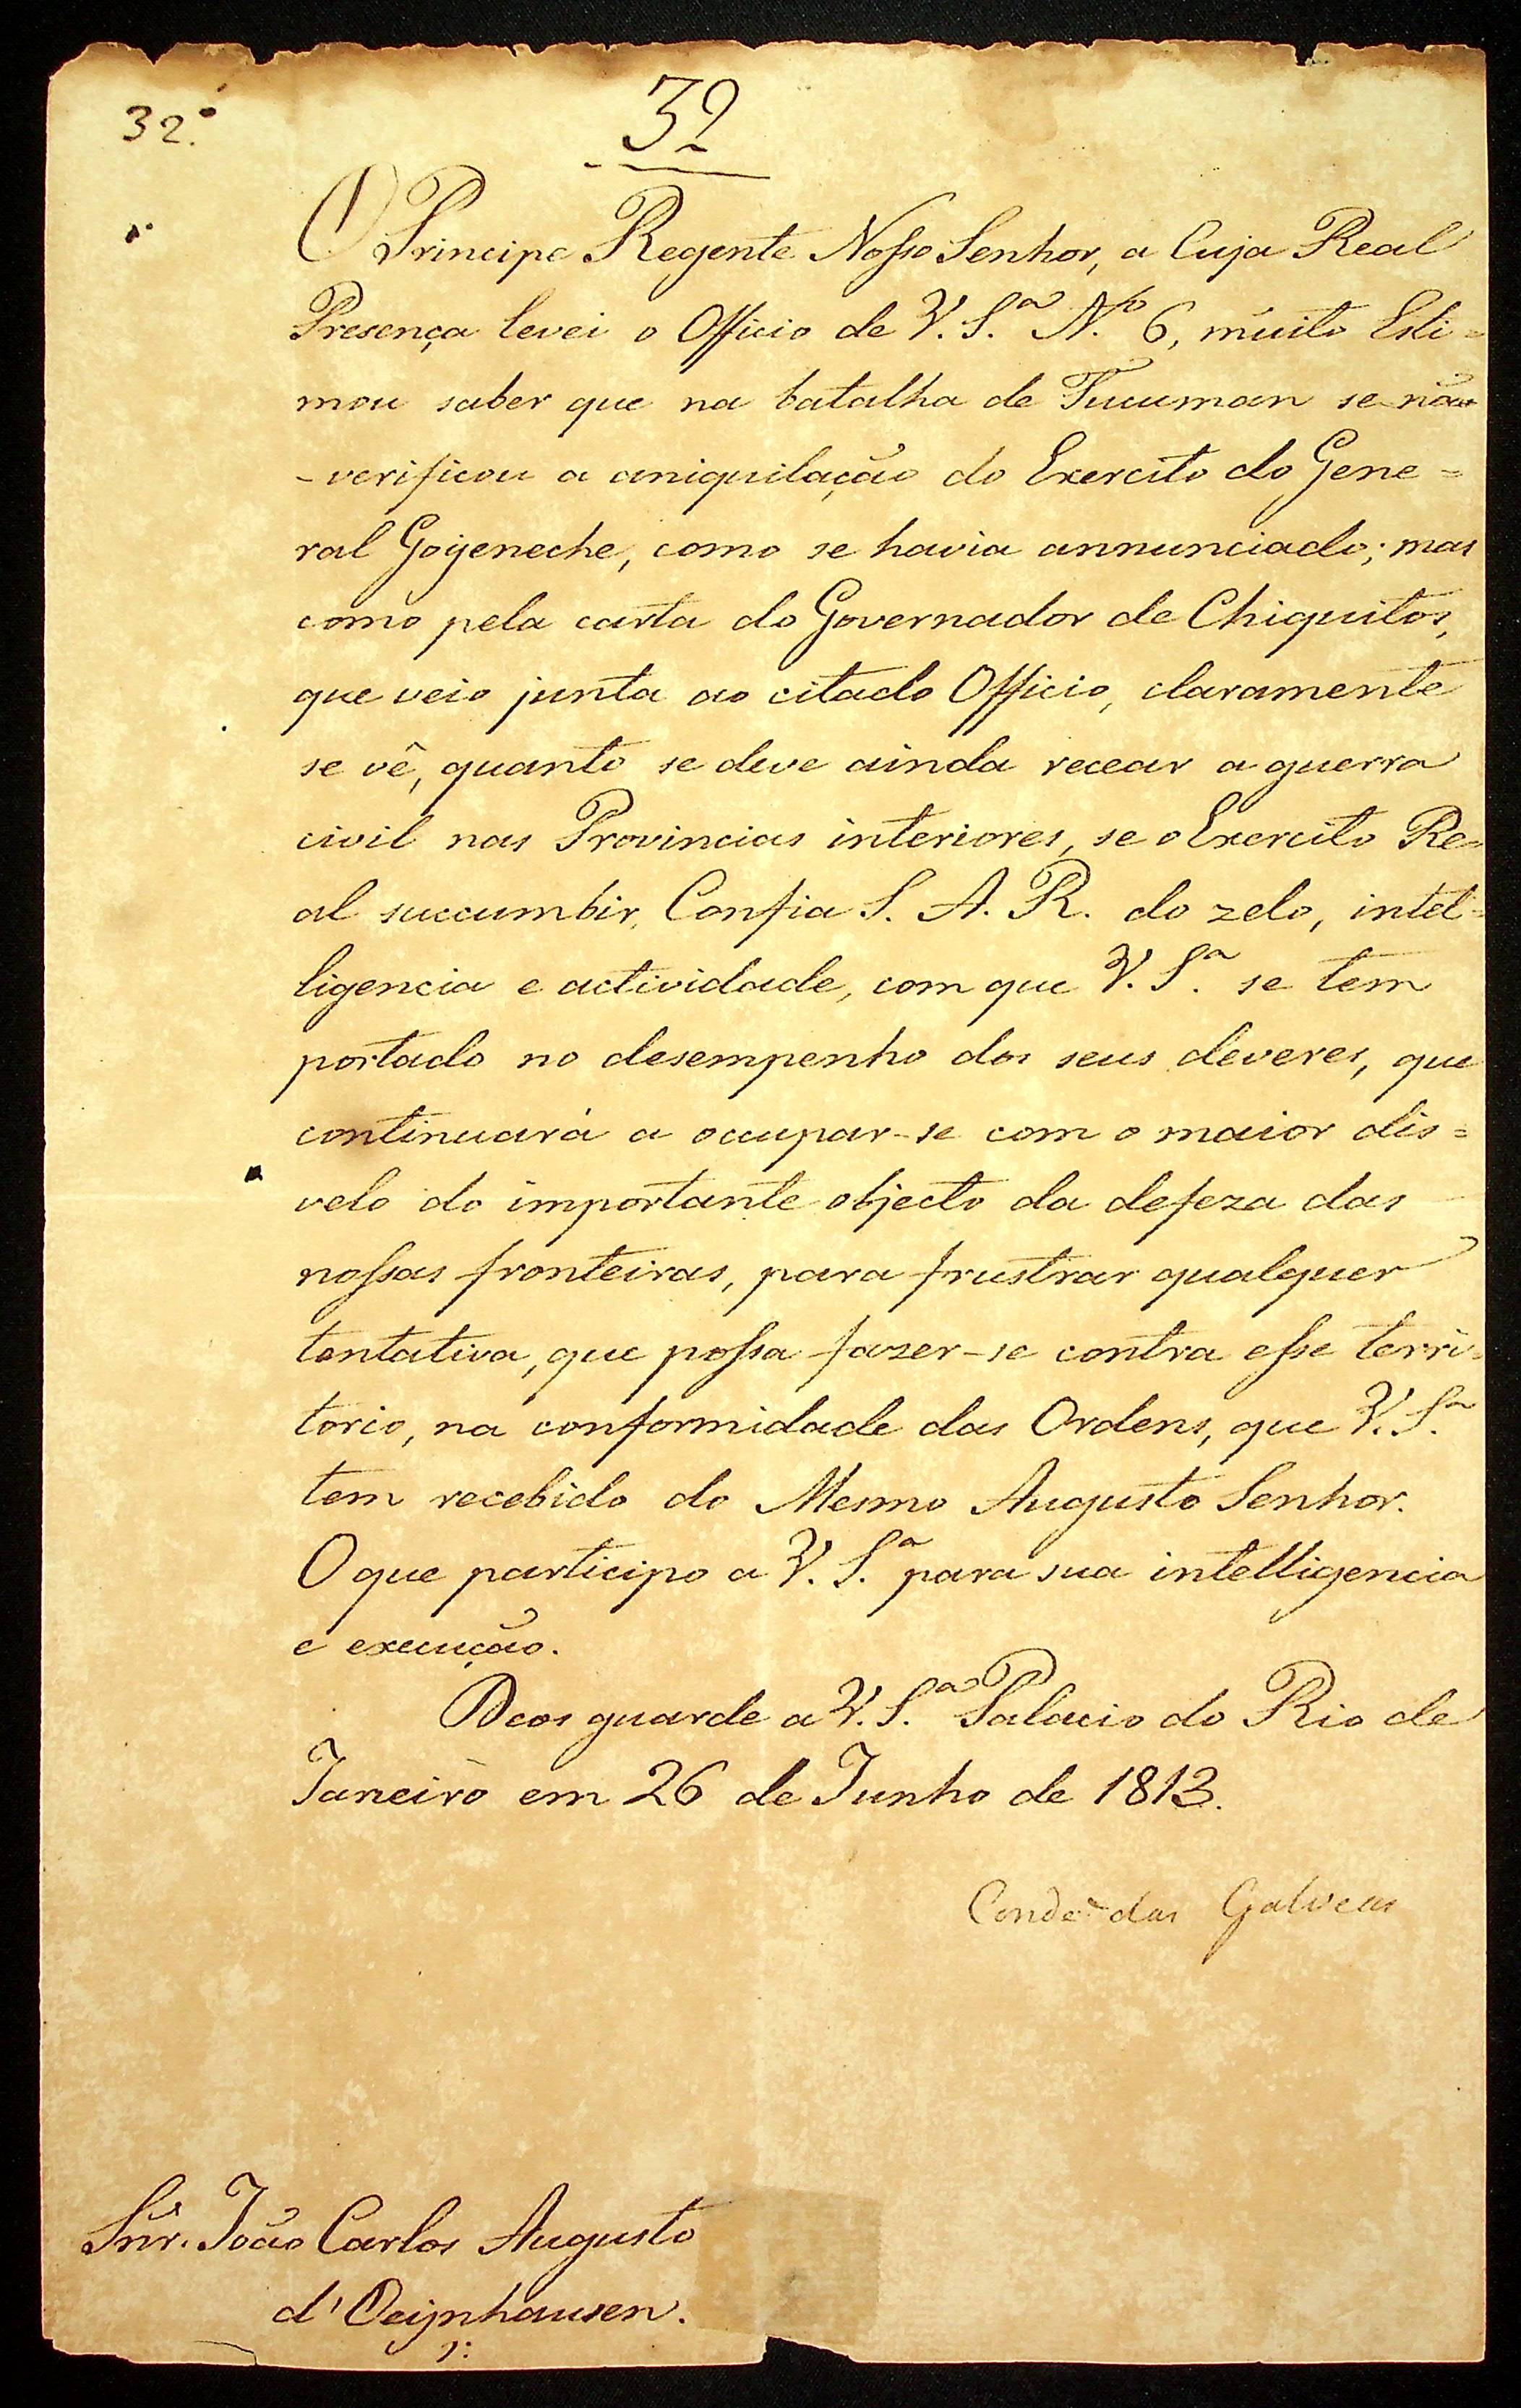 32.º
32
O Principe Regente Nosso Senhor, a Cuja Real
Presença levei o Officio de V. S.ª N.º 6, muito Esti=
mou saber que na batalha de Tucuman se não
-verificou a aniquilação do Exercito do Gene=
ral Goÿeneche, como se havia annunciado; mas
como pela carta do Governador de Chiquitos,
que veio junta ao citado Officio, claramente
se vê, quanto se deve ainda recear a guerra
civil nas Provincias interiores, se o Exercito Re=
al succumbir, Confia S. A. R. do zelo, intel=
ligencia e actividade, com que V. S.ª se tem
portado no desempenho dos seus deveres, que
continuará a occupar-se com o maior dis=
velo do importante objecto da defeza das
nossas fronteiras, para frustrar qualquer
tentativa, que possa fazer-se contra esse terri=
torio, na conformidade das Ordens, que V. S.ª
tem recebido do Mesmo Augusto Senhor.
O que participo a V. S.ª para sua intelligencia
e execução.
Deos guarde a V. S.ª Palacio do Rio de
Janeiro em 26 de Junho de 1813.
Conde das Galveas
Snr. João Carlos Augusto
d'Oeÿnhausen.